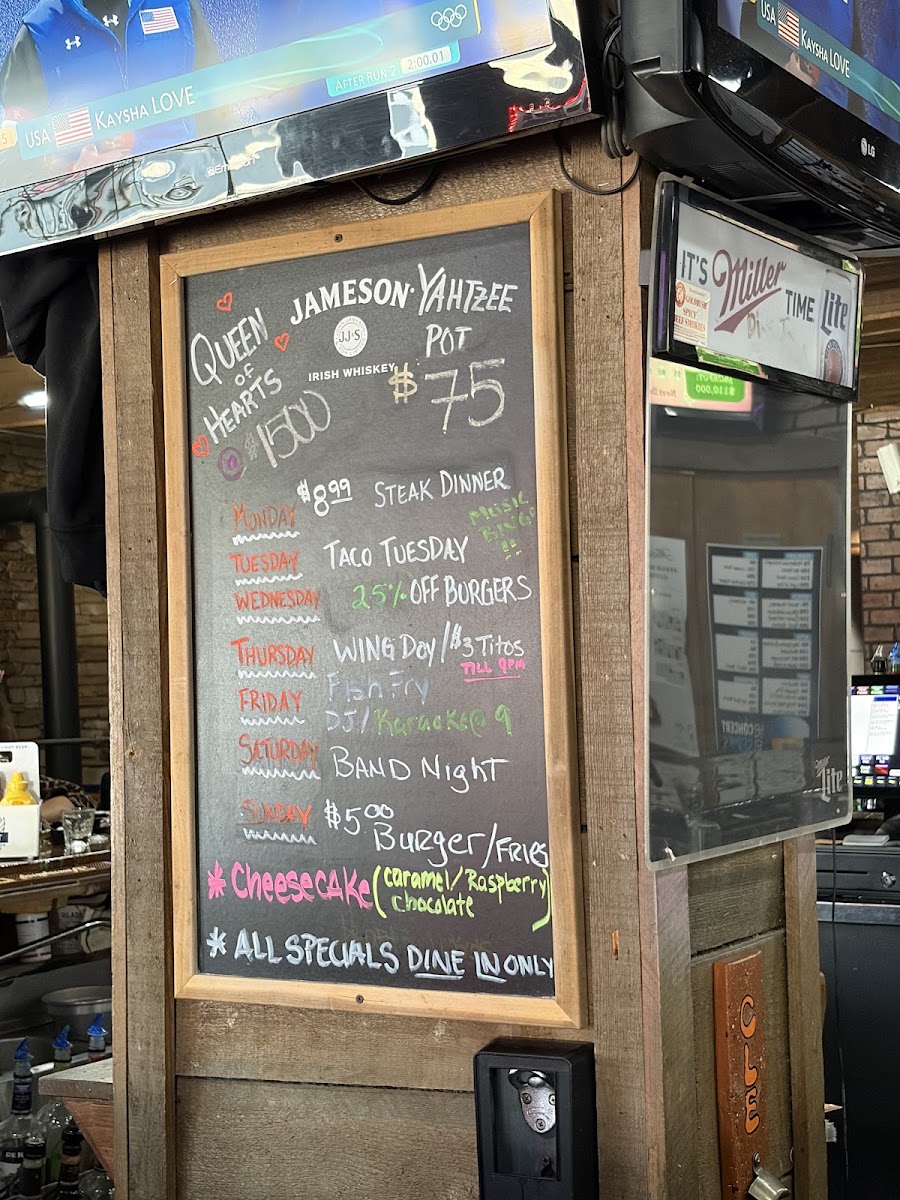 AFTER RUN 2 2:00.01
5 USA KAYSHA LOVE
USA KAYSHA LOVE
LG
QUEEN
OF
HEARTS
$1500
JAMESON
JJ&S
IRISH WHISKEY
YAHTZEE
POT
$75
MONDAY $8.99 STEAK DINNER
MUSIC
BINGO
!!
TUESDAY TACO TUESDAY
WEDNESDAY 25% OFF BURGERS
THURSDAY WING DAY/$3 Titos
TILL 9PM
FRIDAY Fish Fry
DJ/Karaoke@9
SATURDAY BAND NighT
SUNDAY $5.00
Burger/FRIES
*CheeseCAKe (caramel/Raspberry
chocolate)
*ALL SPECIALS DINE IN ONLY
IT'S Miller TIME Lite
$110,000
Lite
CLE